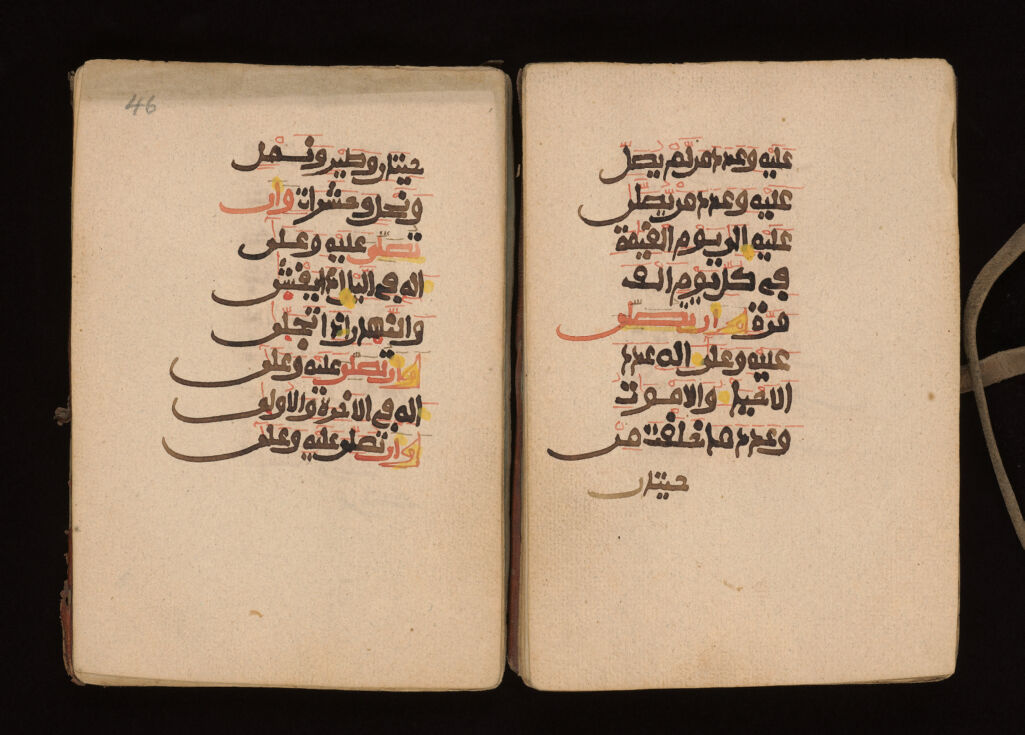 عليه وعدد من لم يصل
عليه وعدد من يصلى
عليه الى يوم القيمة
في كل يوم الف
مرة وان تصلى
عليه وعلى اله عدد
الاحياء والاموت
وعدد ما خلقت من
حيتان
46
حيتان وطير ونمل
ونحل وحشرات وان
تصلى عليه وعلى
اله في اليل اذا يغشى
والنهار اذا تجلى
وان تصلى عليه وعلى
اله في الاخرة والاولى
وان تصلى عليه وعلى